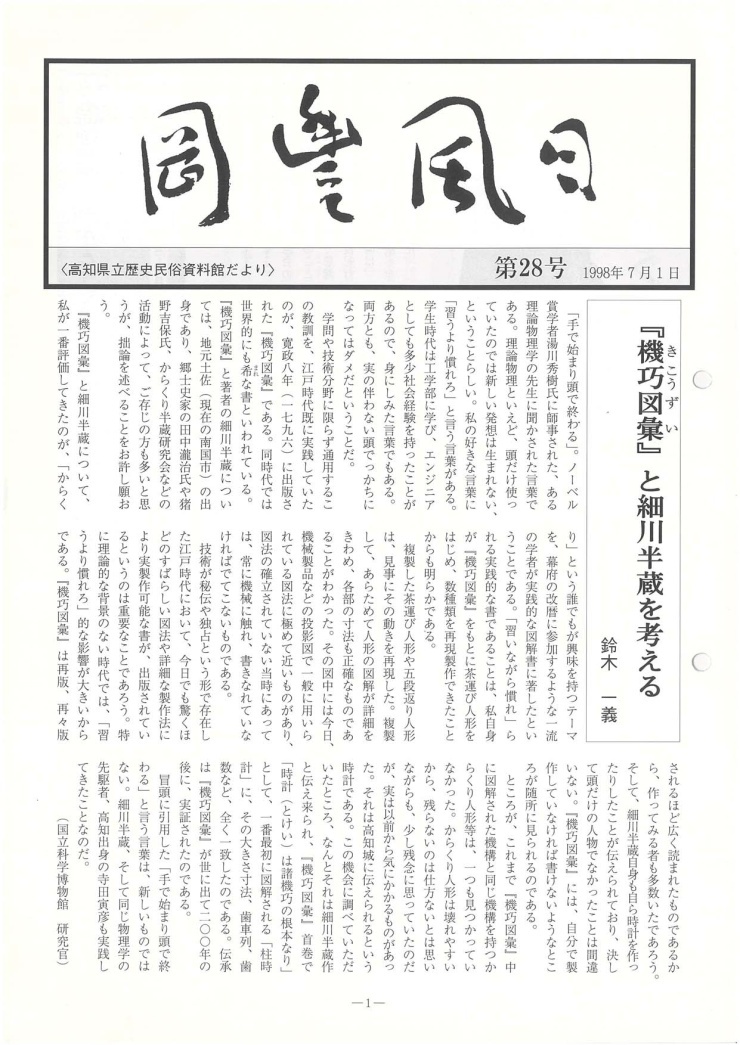 岡豊風日
〈高知県立歴史民俗資料館だより〉
第28号 1998年7月1日
『機巧図彙』と細川半蔵を考える
きこうずい
鈴木 一義
「手で始まり頭で終わる」。ノーベル
賞学者湯川秀樹氏に師事された、ある
理論物理学の先生に聞かされた言葉で
ある。理論物理といえど、頭だけ使っ
ていたのでは新しい発想は生まれない、
ということらしい。私の好きな言葉に
「習うより慣れろ」と言う言葉がある。
学生時代は工学部に学び、エンジニア
としても多少社会経験を持ったことが
あるので、身にしみた言葉でもある。
両方とも、実の伴わない頭でっかちに
なってはダメだということだ。
学問や技術分野に限らず通用するこ
の教訓を、江戸時代既に実践していた
のが、寛政八年（一七九六）に出版さ
れた『機巧図彙』である。同時代では
世界的にも希な書といわれている。
まれ
『機巧図彙』と著者の細川半蔵につい
ては、地元土佐（現在の南国市）の出
身であり、郷土史家の田中瀧治氏や猪
野吉保氏、からくり半蔵研究会などの
活動によって、ご存じの方も多いと思
うが、拙論を述べることをお許し願お
う。
『機巧図彙』と細川半蔵について、
私が一番評価してきたのが、「からく
り」という誰でもが興味を持つテーマ
を、幕府の改暦に参加するような一流
の学者が実践的な図解書に著したとい
うことである。「習いながら慣れ」ら
れる実践的な書であることは、私自身
が『機巧図彙』をもとに茶運び人形を
はじめ、数種類を再現製作できたこと
からも明らかである。
複製した茶運び人形や五段返り人形
は、見事にその動きを再現した。複製
して、あらためて人形の図解が詳細を
きわめ、各部の寸法も正確なものであ
ることがわかった。その図中には今日、
機械製品などの投影図で一般に用いら
れている図法に極めて近いものがあり、
図法の確立されていない当時にあって
は、常に機械に触れ、書きなれていな
ければでてこないものである。
技術が秘伝や独占という形で存在し
た江戸時代において、今日でも驚くほ
どのすばらしい図法や詳細な製作法に
より実製作可能な書が、出版されてい
るというのは重要なことであろう。特
に理論的な背景のない時代では、「習
うより慣れろ」的な影響が大きいから
である。『機巧図彙』は再版、再々版
されるほど広く読まれたものであるか
ら、作ってみる者も多数いたであろう。
そして、細川半蔵自身も自ら時計を作っ
たりしたことが伝えられており、決し
て頭だけの人物でなかったことは間違
いない。『機巧図彙』には、自分で製
作していなければ書けないようなとこ
ろが随所に見られるのである。
ところが、これまで『機巧図彙』中
に図解された機構と同じ機構を持つか
らくり人形等は、一つも見つかってい
なかった。からくり人形は壊れやすい
から、残らないのは仕方ないとは思い
ながらも、少し残念に思っていたのだ
が、実は以前から気にかかるものがあっ
た。それは高知城に伝えられるという
時計である。この機会に調べていただ
いたところ、なんとそれは細川半蔵作
と伝え来られ、『機巧図彙』首巻で
「時計（とけい）は諸機巧の根本なり」
として、一番最初に図解される「柱時
計」に、その大きさ寸法、歯車列、歯
数など、全く一致したのである。伝承
は『機巧図彙』が世に出て二〇〇年の
後に、実証されたのである。
冒頭に引用した「手で始まり頭で終
わる」と言う言葉は、新しいものでは
ない。細川半蔵、そして同じ物理学の
先駆者、高知出身の寺田寅彦も実践し
てきたことなのだ。
（国立科学博物館 研究官）
―1―